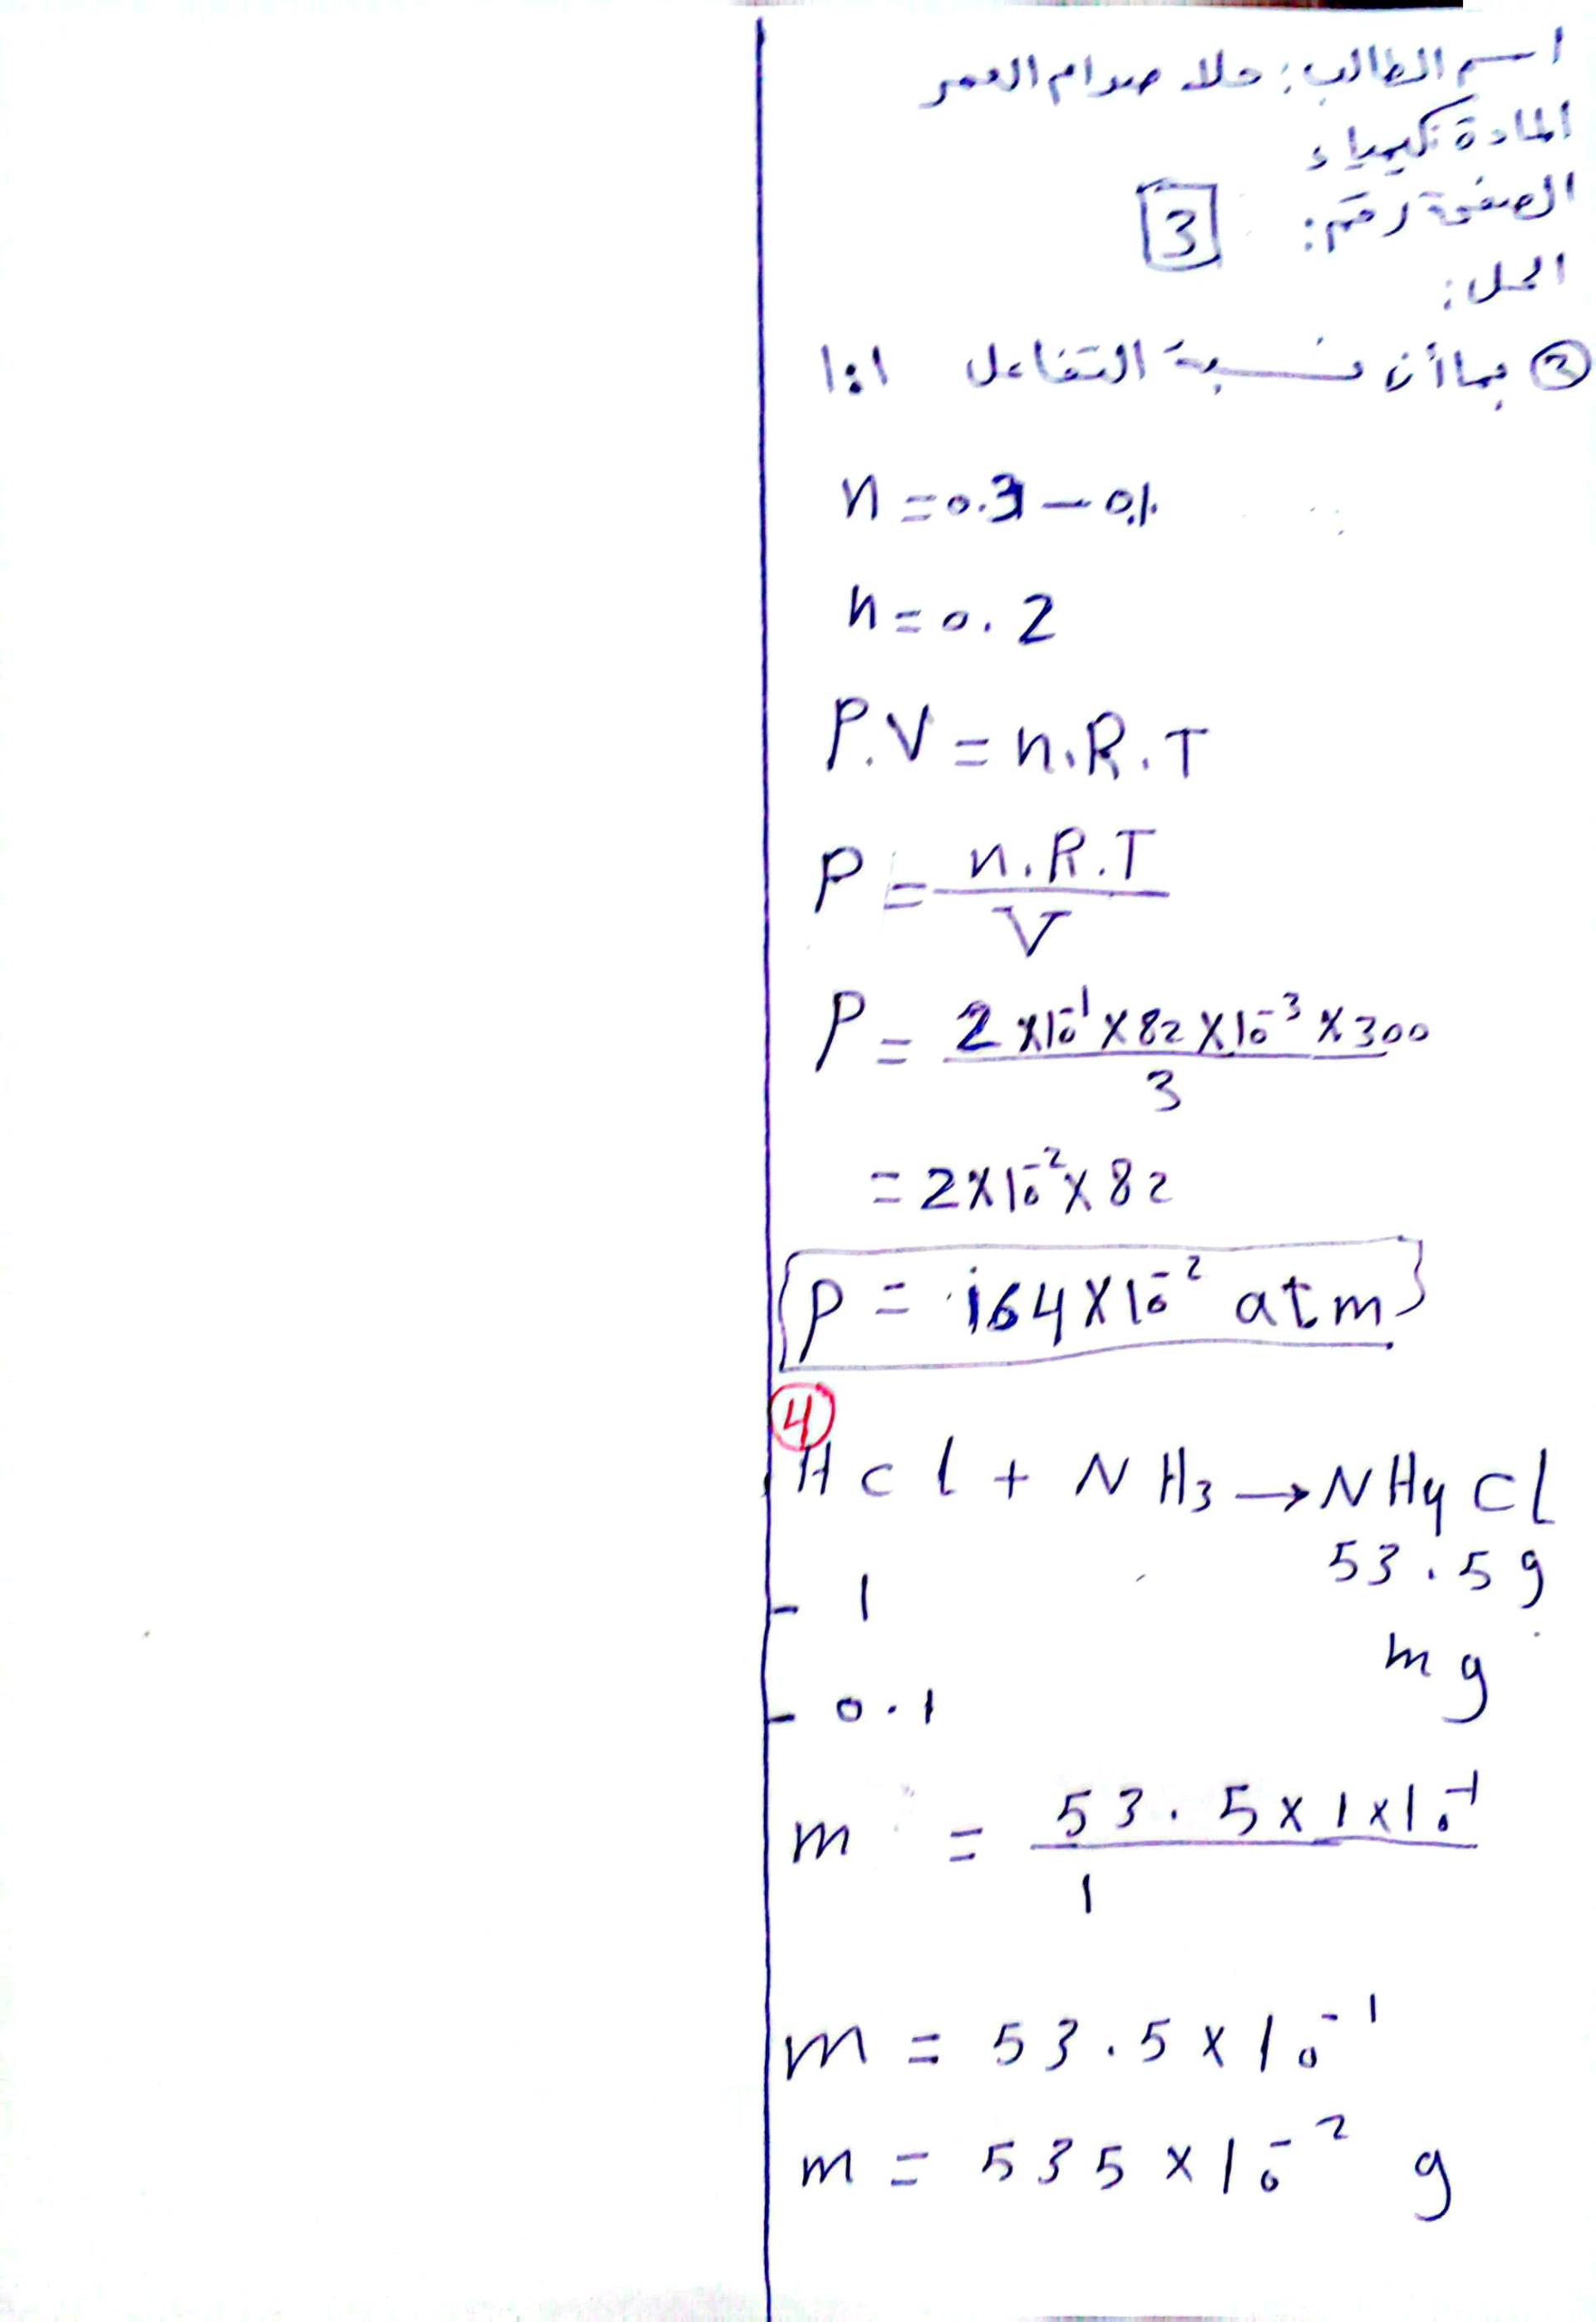 اسم الطالب: حلا صدام العمر
المادة كيمياء
الصفحة رقم: 3
الحل:
3 بما أن نسبة التفاعل 1:1
n = 0.3 - 0.1
n = 0.2
P.V = n.R.T
P = n.R.T / V
P = 2×10⁻¹×82×10⁻³×300 / 3
= 2×10⁻²×82
P = 164×10⁻² atm
4
HCl + NH3 → NH4Cl
53.5g
- 1
mg
- 0.1
m = 53.5×1×10⁻¹ / 1
m = 53.5×10⁻¹
m = 535×10⁻² g